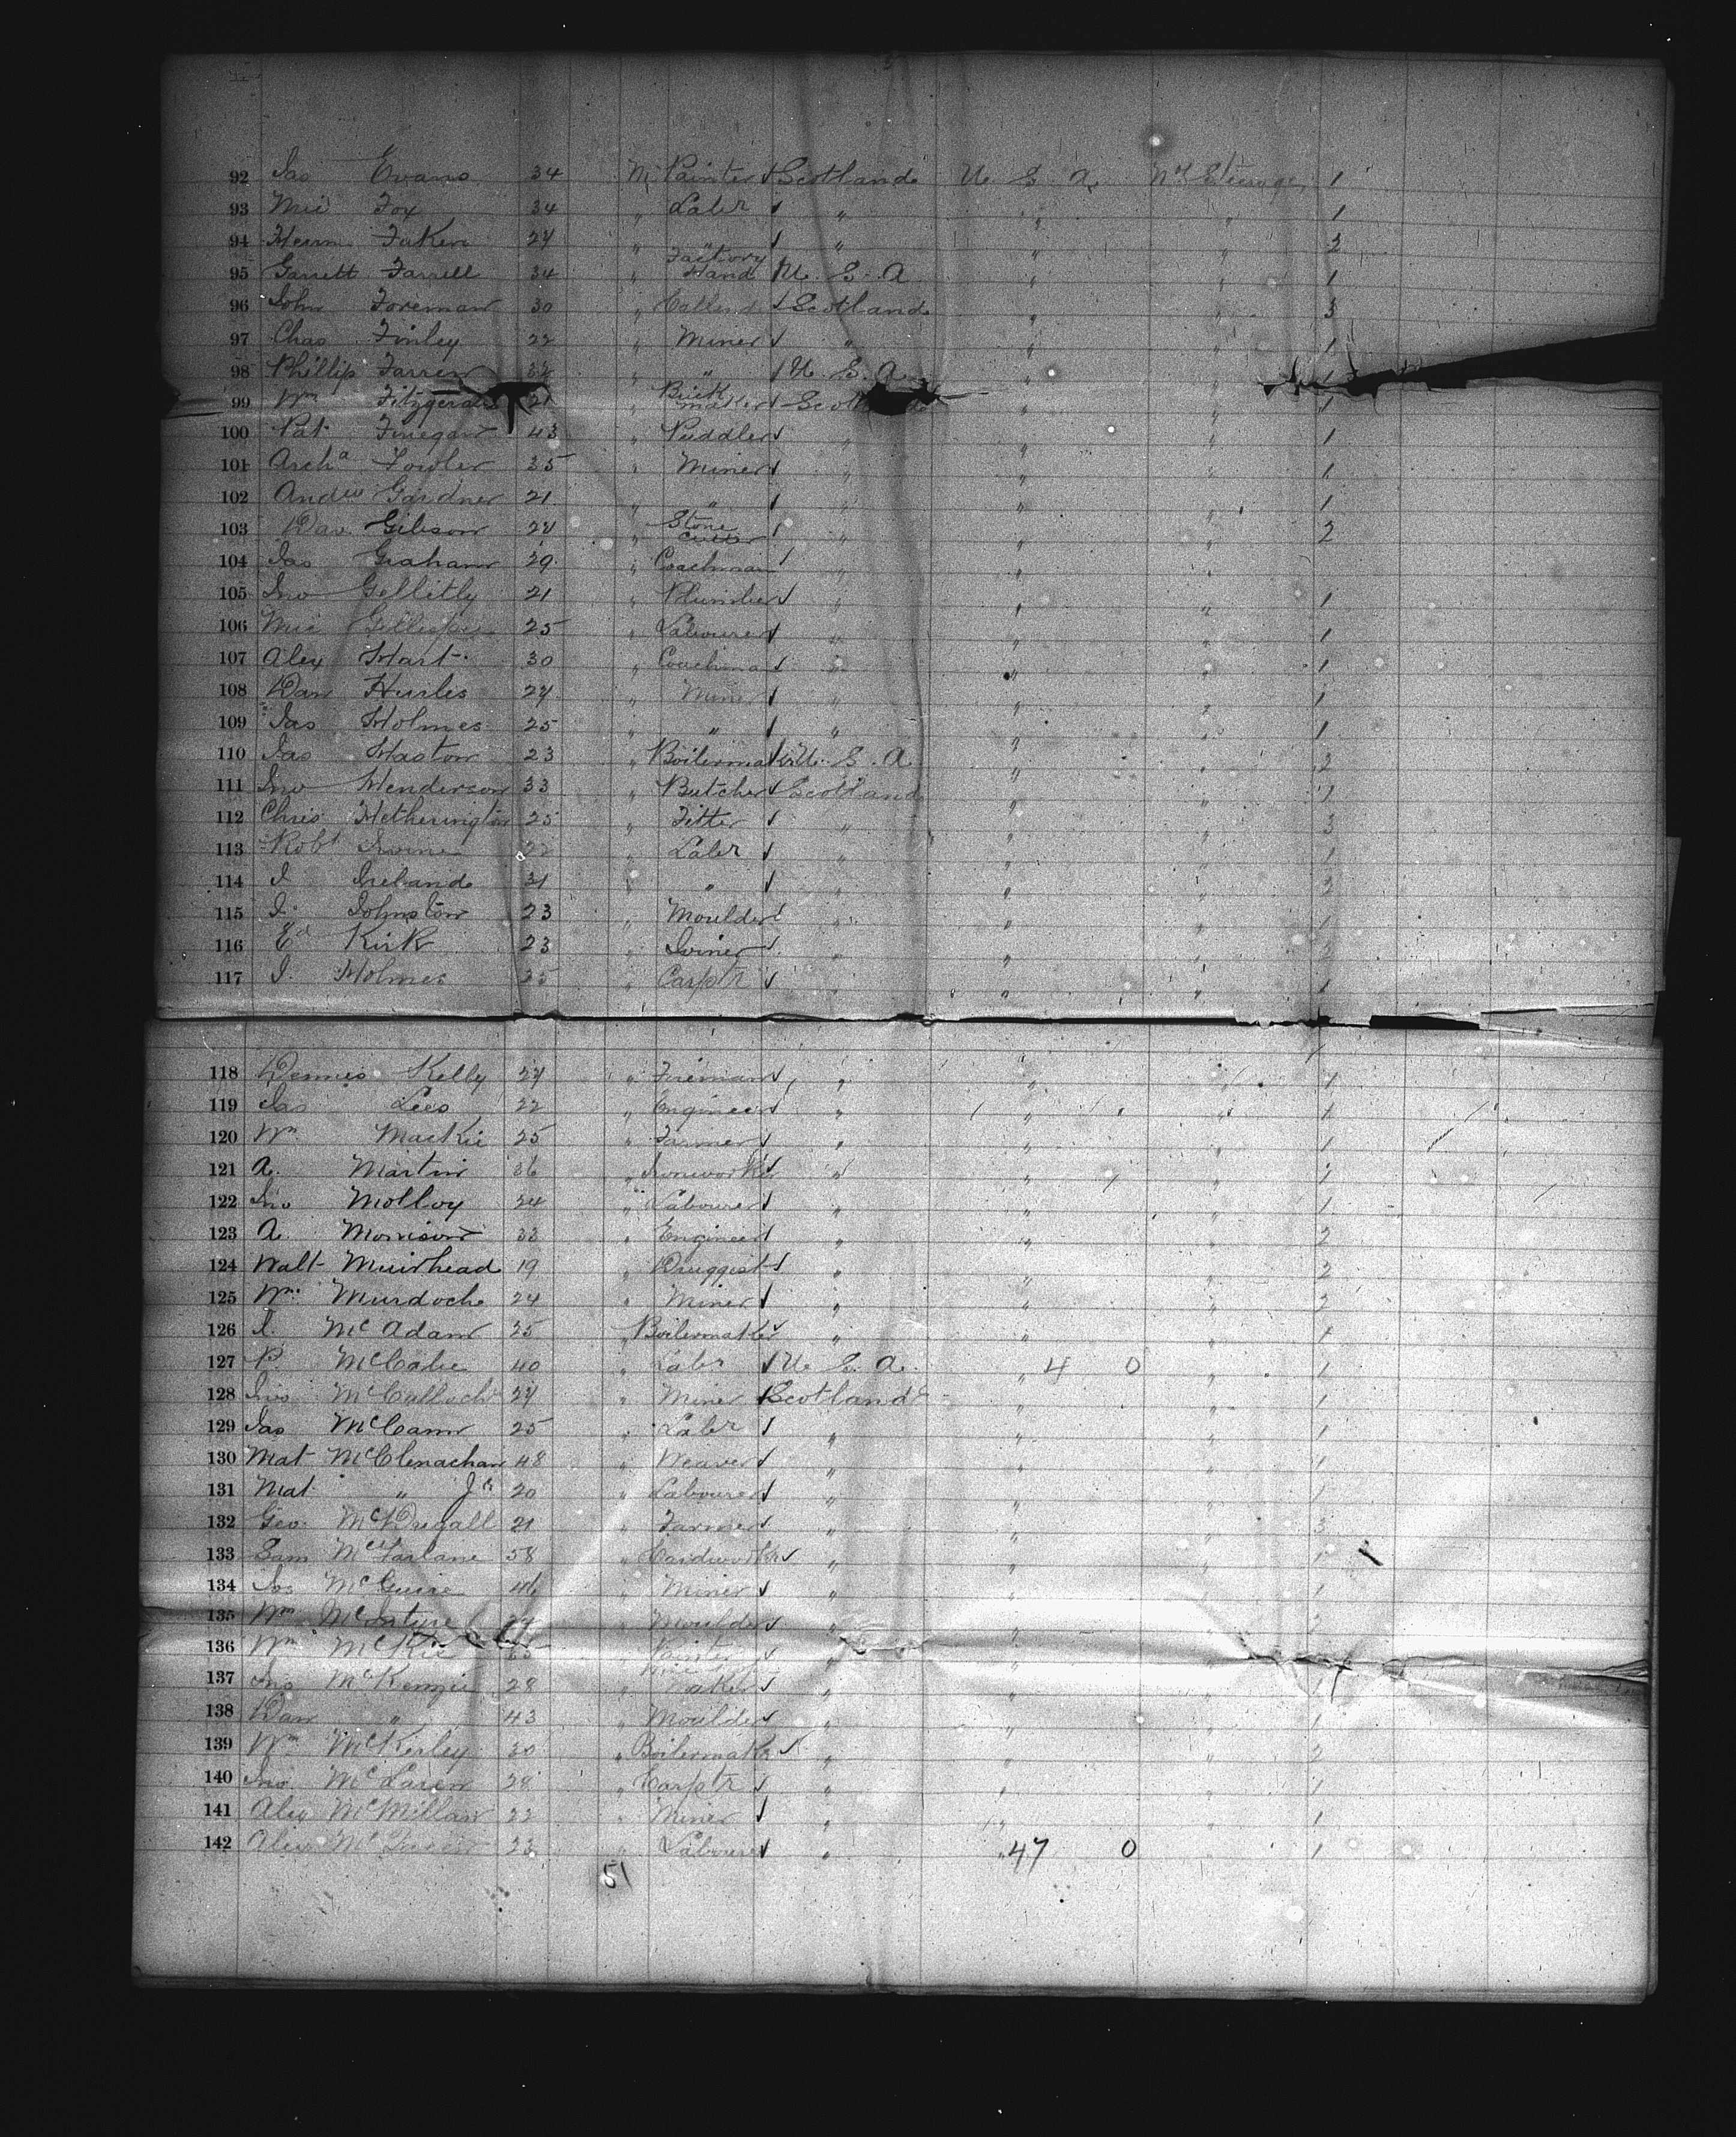 92 Jas Evans 34 M Painter Scotland U. S. A. Nd Steerage 1
93 Mic Fox 34 " Labr " " " 1
94 Herm 24 " " " " " 2
95 Garrett Farrell 34 " Factory Hand U. S. A " " 1
96 John Foreman 30 " Scotland " " 3
97 Chas Finley 22 " Miner " " " 1
98 Phillip Farren 32 " " U. S. A " " 1
99 Wm Fitzgerald 21 " Brick maker Scotland " " 1
100 Pat Finegan 43 " Puddler " " " 1
101 Archd Fowler 35 " Miner " " " 1
102 Andw Gardner 21 " " " " " 1
103 Dav Gibson 24 " Stone Cutter " " " 2
104 Jas Graham 29 " Coachman " " "
105 Jno Gellitly 21 " Plumber " " " 1
106 Mic Gillespie 25 " Labourer " " " 1
107 Alex Hart 30 " Coachman " " " 1
108 Dan Hurles 24 " Miner " " " 1
109 Jas Holmes 25 " " " " " 1
110 Jas Haston 23 " Boilermaker U. S. A " " 2
111 Jno Henderson 33 " Butcher Scotland " " 1
112 Chris Hetherington 25 " Fitter " " " 3
113 Robt Irvine 22 " Labr " " " 1
114 J Ireland 31 " " " " " 2
115 J. Johnston 23 " Moulder " " " 1
116 Ed Kirk 23 " Joiner " " " 2
117 J. Holmes 35 " Carptr " " " 1
118 Dennis Kelly 24 " Fireman " " " 1
119 Jas Lees 22 " Engineer " " " 1
120 Wm Mackie 25 " Farmer " " " 1
121 A. Martin 36 " Ironworker " " "
122 Jno Molloy 24 " Labourer " " " 1
123 A. Morrison 33 " Engineer " " " 2
124 Walt Muirhead 19 " Druggist " " " 2
125 Wm Murdoch 24 " Miner " " " 2
126 J. McAdam 25 " Boilermaker " " " 1
127 P. McCabe 40 " Labr U. S. A. " 4 0 " 1
128 Jno McCulloch 24 " Miner Scotland " " 1
129 Jas McCann 25 " Labr " " " 1
130 Mat McClenachan 48 " Weaver " " " 1
131 Mat " Jr 20 " Labourer " " " 1
132 Geo. McDugall 21 " Farmer " " " 3
133 Sam McFarlane 58 " " " " 1
134 Jas McGuire 46 " Miner " " " 1
135 Wm McIntyre 24 " Moulder " " " 2
136 Wm McKie " Painter " " "
137 Jno McKenzie 28 " " " " 1
138 Dan " 43 " Moulder " " " 1
139 Wm McKerley 30 " Boilermaker " " " 2
140 Jno McLaren 28 " Carptr " " " 1
141 Alex McMillan 22 " Miner " " " 1
142 Alex 23 " Labourer " " 47 0 " 1
51